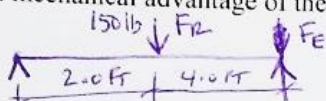 mechanical advantage of the
150 lb FR FE
2.0 FT 4.0 FT